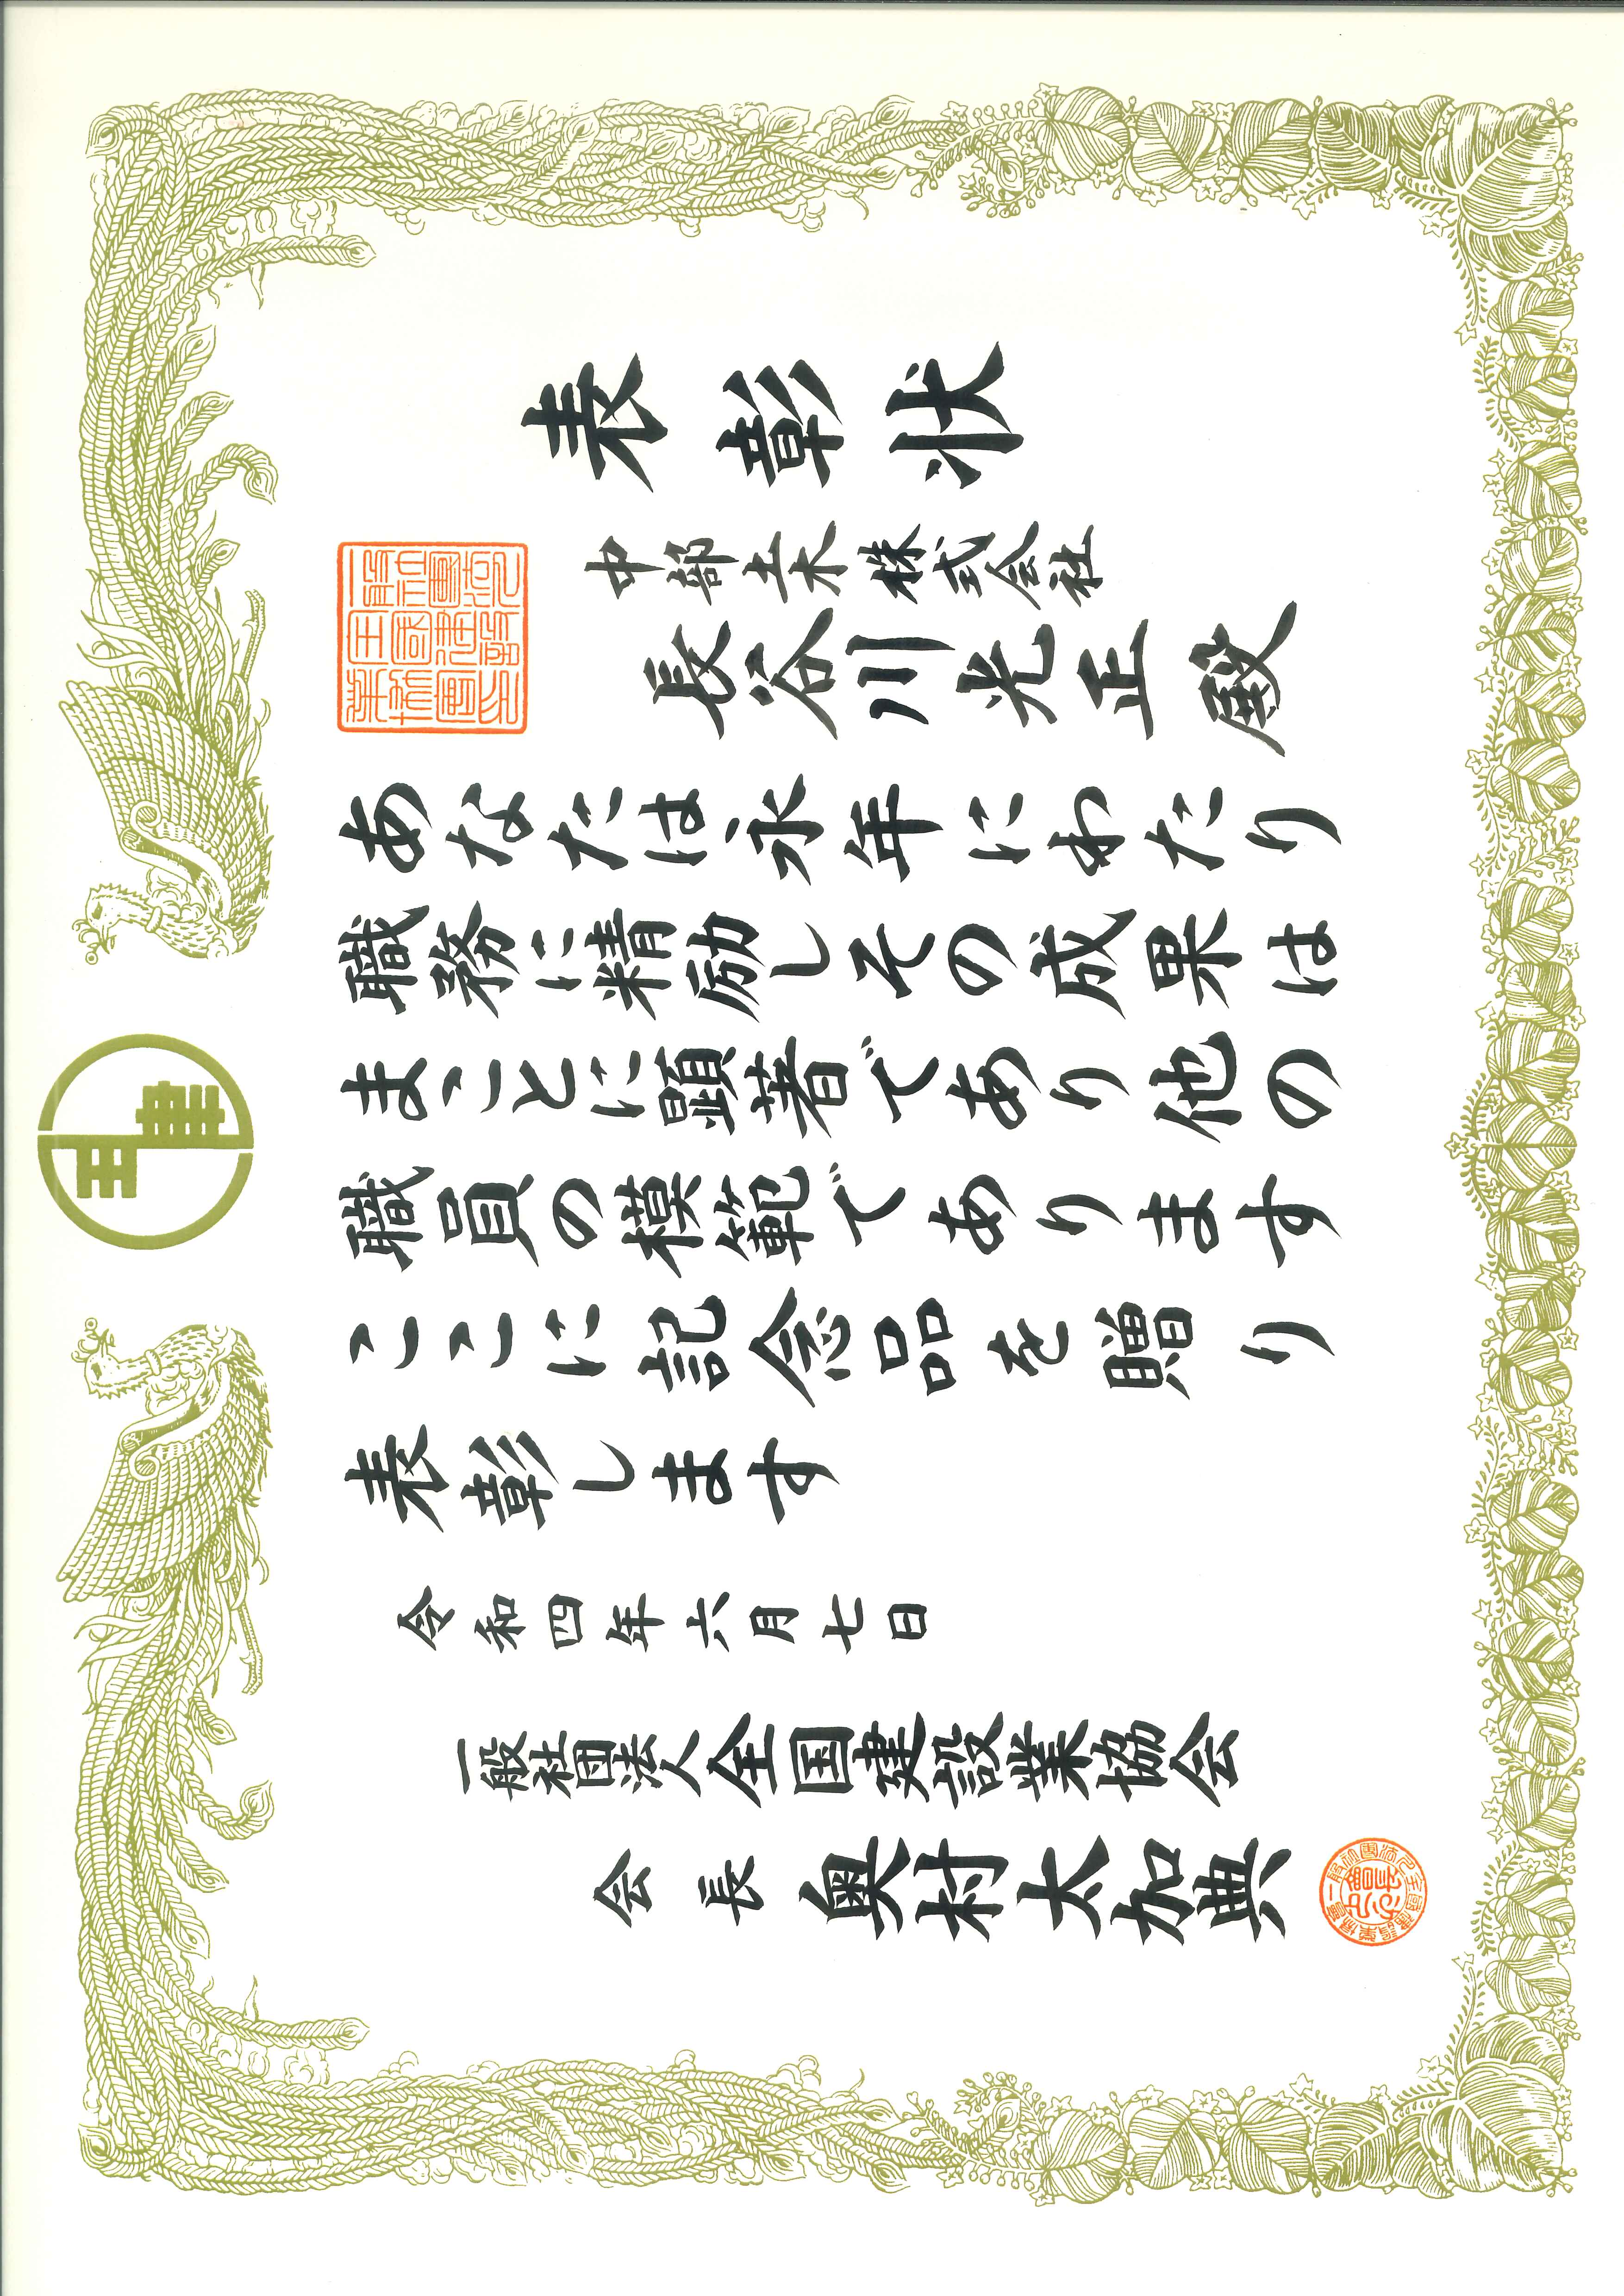 表彰状
中部土木株式会社
長谷川光正殿
あなたは永年にわたり
職務に精励しその成果は
まことに顕著であり他の
職員の模範であります
ここに記念品を贈り
表彰します
令和四年六月七日
一般社団法人全国建設業協会
会長奥村太加典
全建